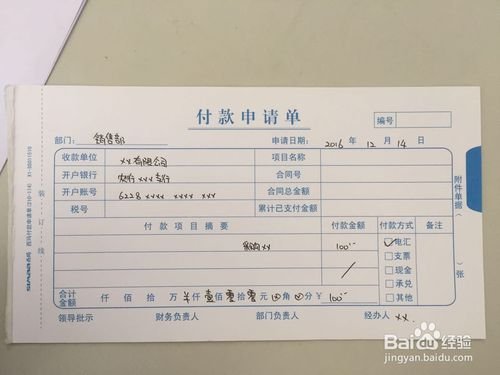 付款申请单
编号
部门：销售部 申请日期：2016年12月14日
收款单位 xx有限公司 项目名称
开户银行 农行xxx支行 合同号
开户账号 6228 xxxx xxxx xxx 合同总金额
税号 累计已支付金额
付款项目摘要 付款金额 付款方式 备注
采购xx 100 电汇
支票
现金
承兑
其他
合计金额 仟佰拾万 仟壹佰零拾零元 角 分 ￥100
领导批示 财务负责人 部门负责人 经办人 xx.
装订线
附件单据（ ）张
Baidu经验
jingyan.baidu.com